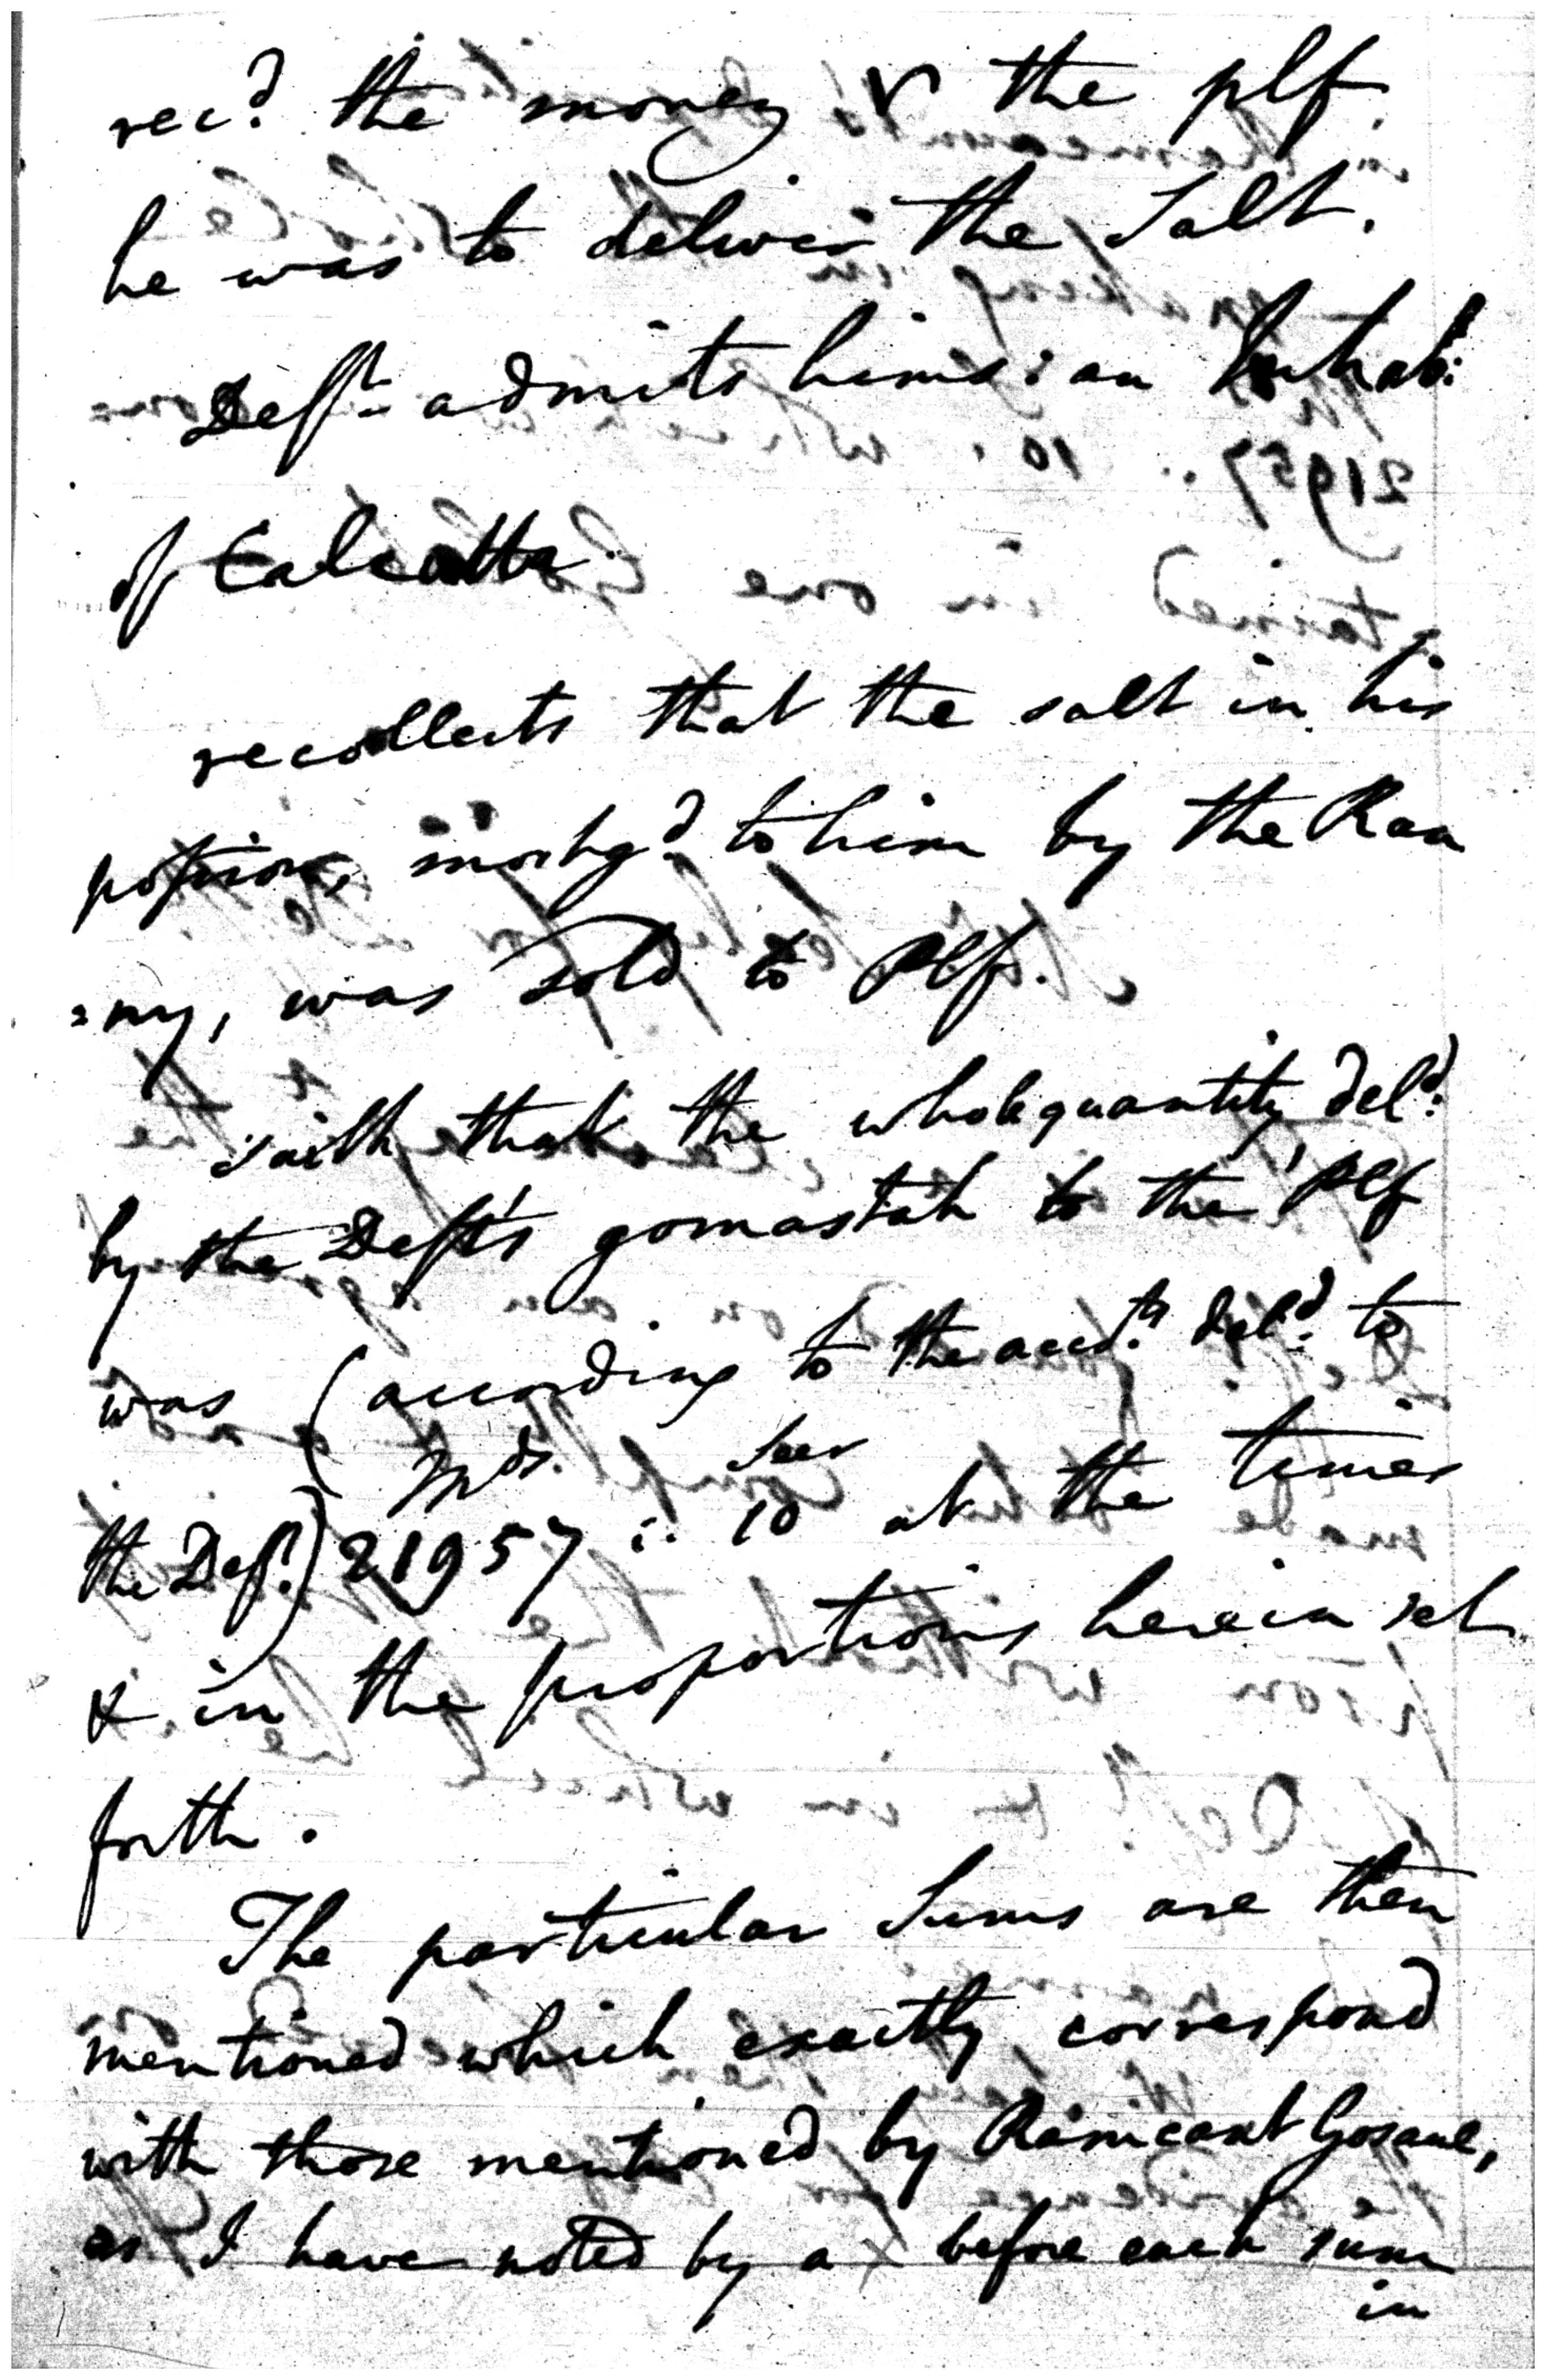 rec.d the money & the plf.
he was to deliver the Salt.
Deft. admits hims: an Inhab:
of Calcutta.
recollects that the salt in his
possion, mortg.d to him by the Ran
=ny, was sold to Plf.
Saith that the whole quantity del.d
by the Deft's gomastah to the Plf
was (according to the acc.ts del.d to
Mds. Seer
the Deft.) 21957 :: 10 at the times
& in the proportions herein set
forth.
The particular Sums are then
mentioned which exactly correspond
with those mentioned by Ramcant Gosaul,
as I have noted by a x before each sum
in